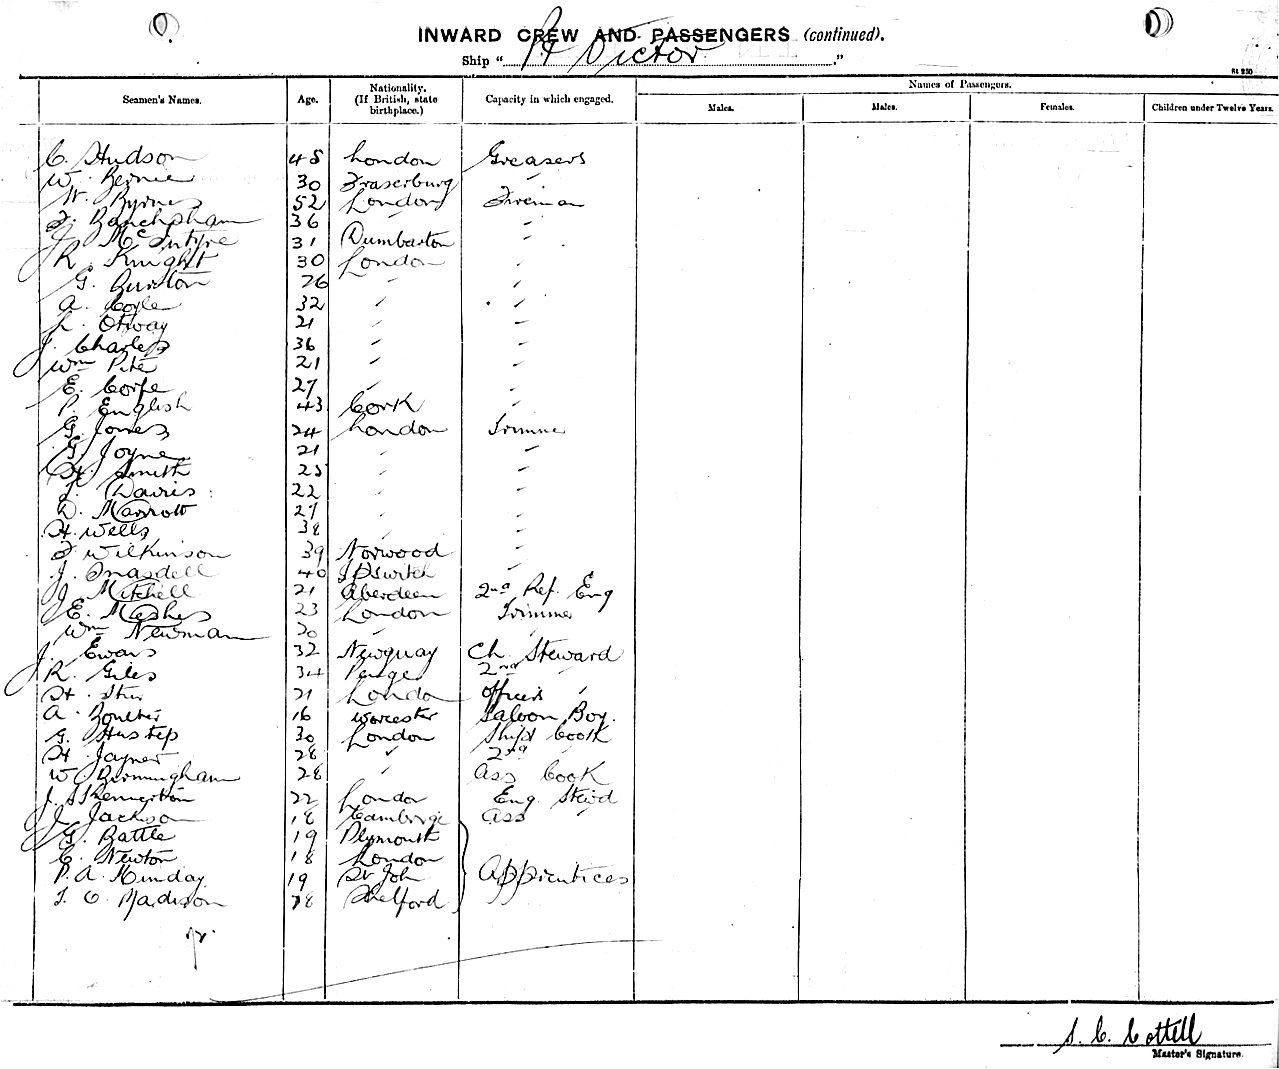 INWARD CREW AND PASSENGERS (continued).
Ship " Pt Victor ."
Names of Passengers.
Seamen's Names. Age. Nationality. (If British, state birthplace.) Capacity in which engaged. Males. Males. Females. Children under Twelve Years.
C. Hudson 48 London Greasers
W. Bernie 30 Fraserburg "
W. Byrnes 52 London Fireman
F. 36 " "
J. McIntyre 31 Dumbarton "
R. Knight 30 London "
G. Burston 26 " "
A. Coyle 32 " "
L. Otway 21 " "
J. Charles 36 " "
Wm Pite 21 " "
E. Corfe 27 " "
P. English 43 Cork "
G. Jones 24 London Trimmer
G. Joyne 21 " "
H. Smith 25 " "
J. Davies 22 " "
D. Marrott 27 " "
H. Wells 38 " "
F. Wilkinson 39 Norwood "
J. 40 Ipswitch "
J. Mitchell 21 Aberdeen 2nd Ref. Eng
E. 23 London Trimmer
Wm Newman 20 " "
J. Evans 32 Newquay Ch. Steward
R. Giles 34 Penge 2nd "
H. 21 London Officers "
A. Boulter 16 Worcester Saloon Boy.
G. 30 London Ship's Cook
H. Jayner 28 " 2nd "
W. Birmingham 28 " Ass Cook
J. Skennerton 22 London Eng. Stew'd
J. Jackson 18 Cambrige Ass "
G. Battle 19 Plymouth
C. Newton 18 London
P. A. Munday 19 St John Apprentices
T. O. Madison 18 Shelford
S. C. Cottell
Master's Signature.